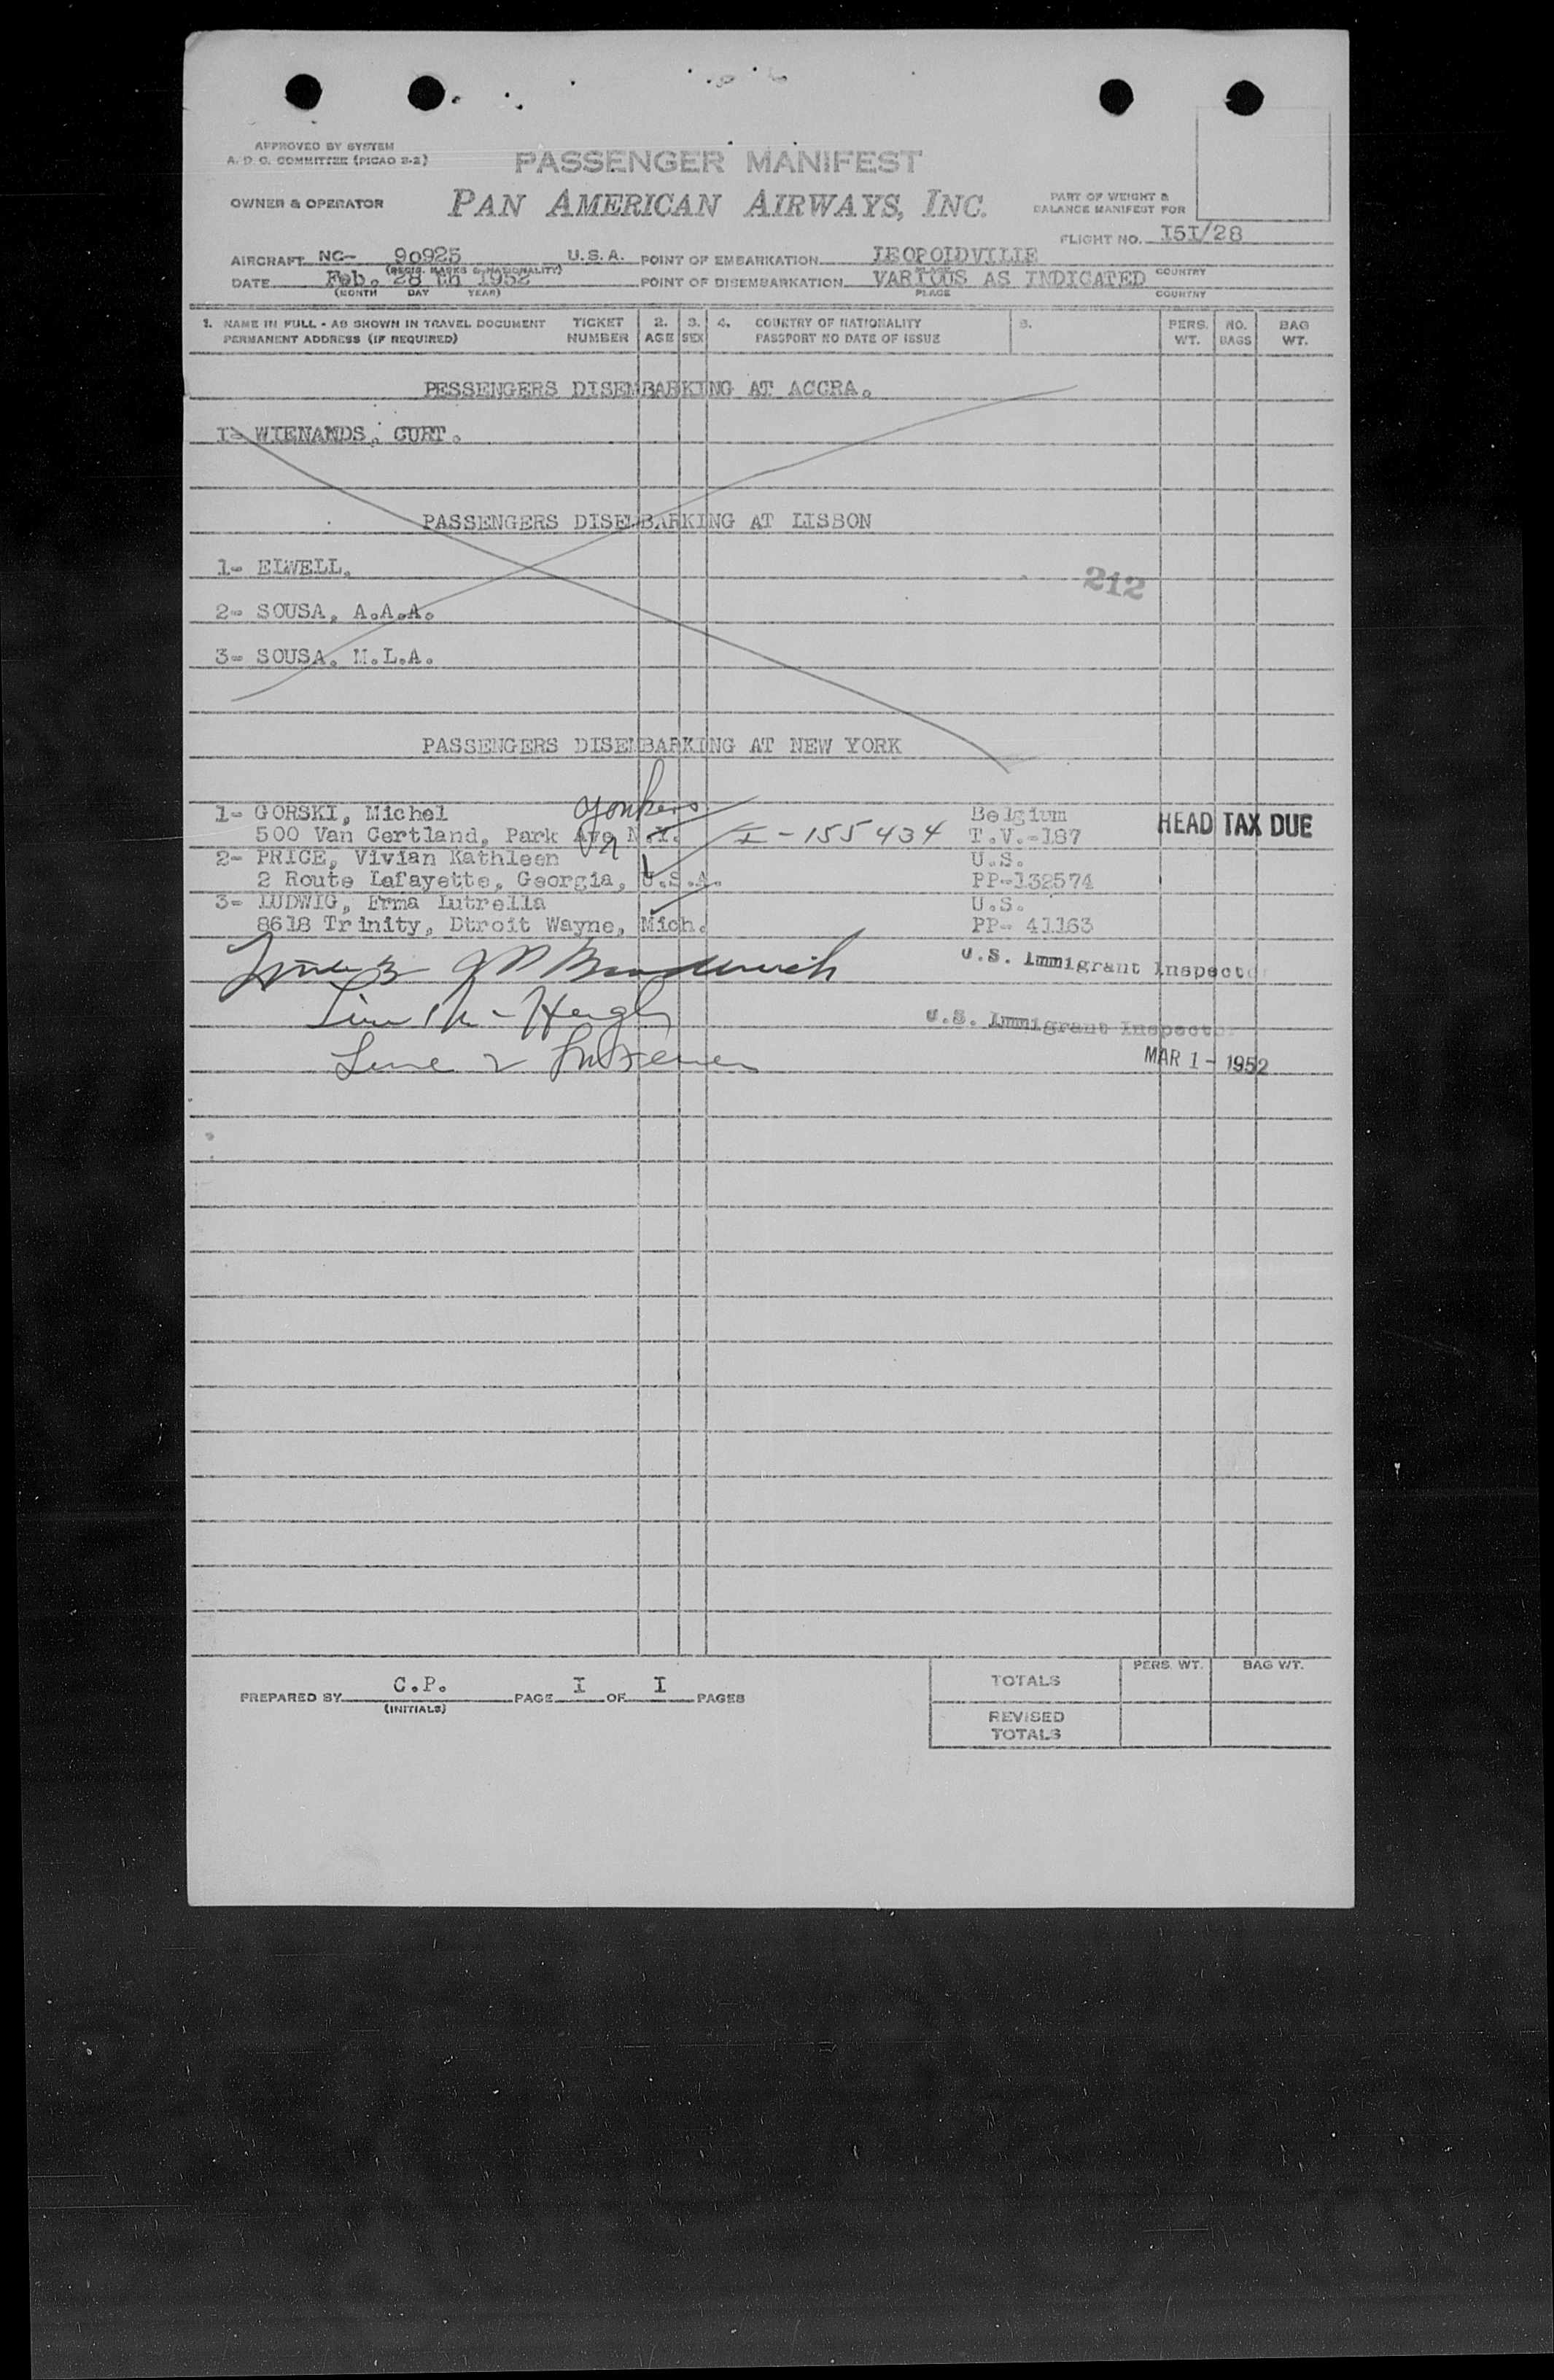 APPROVED BY SYSTEM
A. D. C. COMMITTEE (PICAO 3-2)
PASSENGER MANIFEST
OWNER & OPERATOR
PAN AMERICAN AIRWAYS, INC.
PART OF WEIGHT &
BALANCE MANIFEST FOR
FLIGHT NO. I5I/28
AIRCRAFT NC- 90925 U.S.A. POINT OF EMBARKATION LEOPOLDVILLE
(REGIS. MARKS & NATIONALITY) PLACE COUNTRY
DATE Feb. 28 th 1952 POINT OF DISEMBARKATION VARIOUS AS INDICATED
(MONTH DAY YEAR) PLACE COUNTRY
1. NAME IN FULL - AS SHOWN IN TRAVEL DOCUMENT TICKET 2. 3. 4. COUNTRY OF NATIONALITY 5. PERS. NO. BAG
PERMANENT ADDRESS (IF REQUIRED) NUMBER AGE SEX PASSPORT NO DATE OF ISSUE WT. BAGS WT.
PESSENGERS DISEMBARKING AT ACCRA.
I- WIENANDS, CURT.
PASSENGERS DISEMBARKING AT LISBON
1- ELWELL.
212
2- SOUSA, A.A.A.
3- SOUSA, M.L.A.
PASSENGERS DISEMBARKING AT NEW YORK
1- GORSKI, Michel Yonkers Belgium
500 Van Certland, Park Ave N.Y. I-155434 T.V.-187 HEAD TAX DUE
2- PRICE, Vivian Kathleen U.S.
2 Route Lafayette, Georgia, U.S.A. PP-132574
3- LUDWIG, Erma Lutrella U.S.
8618 Trinity, Dtroit Wayne, Mich. PP- 41163
U.S. Immigrant Inspector
U.S. Immigrant Inspector
Line 2
MAR 1 - 1952
PREPARED BY C.P. PAGE I OF I PAGES
(INITIALS)
PERS. WT. BAG WT.
TOTALS
REVISED
TOTALS